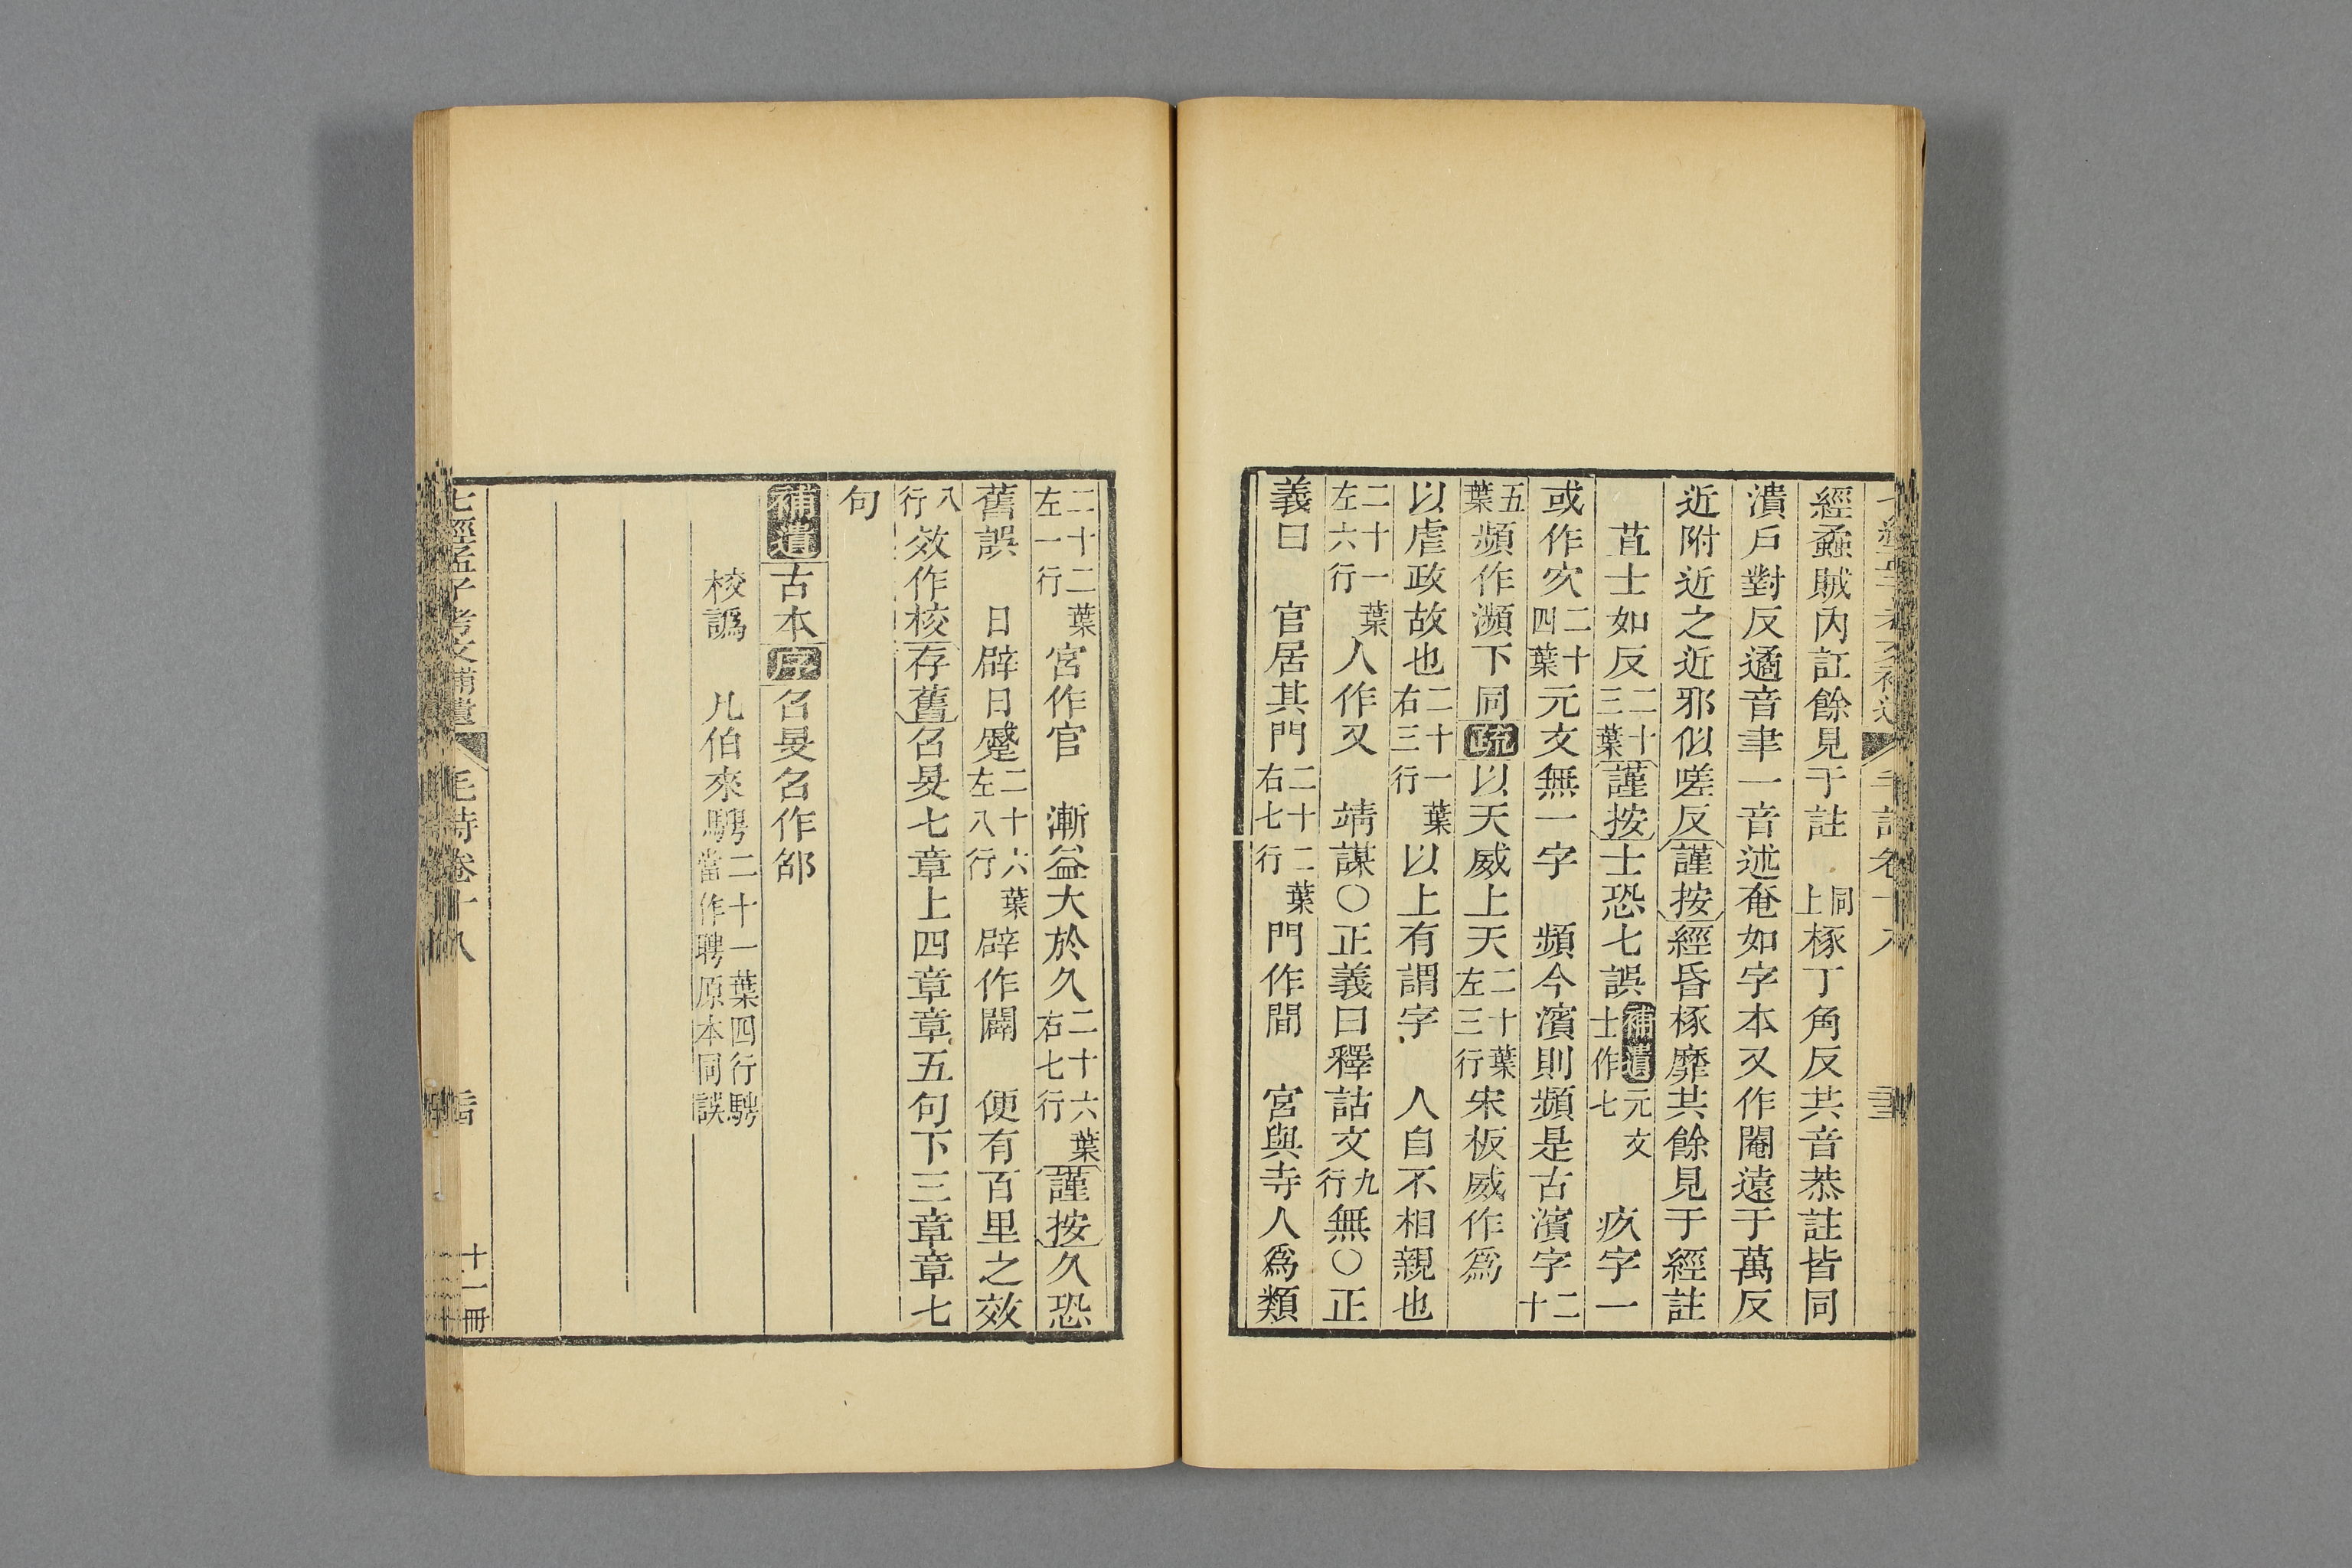 經蟊賊內訌餘見于註 同上 椓丁角反共音恭註皆同
潰戶對反遹音聿一音述奄如字本又作閹遠于萬反
近附近之近邪似嗟反謹按經昏椓靡共餘見于經註
苴士如反二十三葉謹按士恐七誤補遺元文士作七 疚字一
或作㝌二十四葉元文無一字 頻今濱則頻是古濱字二十
五葉頻作瀕下同疏以天威上天二十葉左三行宋板威作爲
以虐政故也二十一葉右三行以上有謂字 人自不相親也
二十一葉左六行人作又 靖謀○正義曰釋詁文九行無○正
義曰 官居其門二十二葉右七行門作間 宮與寺人爲類
二十二葉左一行宮作官 漸益大於久二十六葉右七行謹按久恐
舊誤 日辟日蹙二十六葉左八行辟作闢 便有百里之效
八行效作核存舊召旻七章上四章章五句下三章章七
句
補遺古本序召旻召作邵
校譌 凡伯來騁二十一葉四行騁當作聘原本同誤
七經孟子考文補遺 毛詩卷十八 十一冊